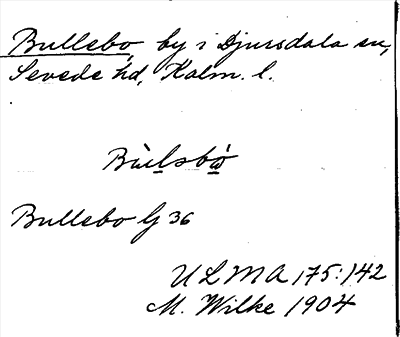 Bullebo, by i Djursdala sn,
Sevede hd, Kalm. l.
Bùlsbò
Bullebo G 36
ULMA 175:142
M. Wilke 1904